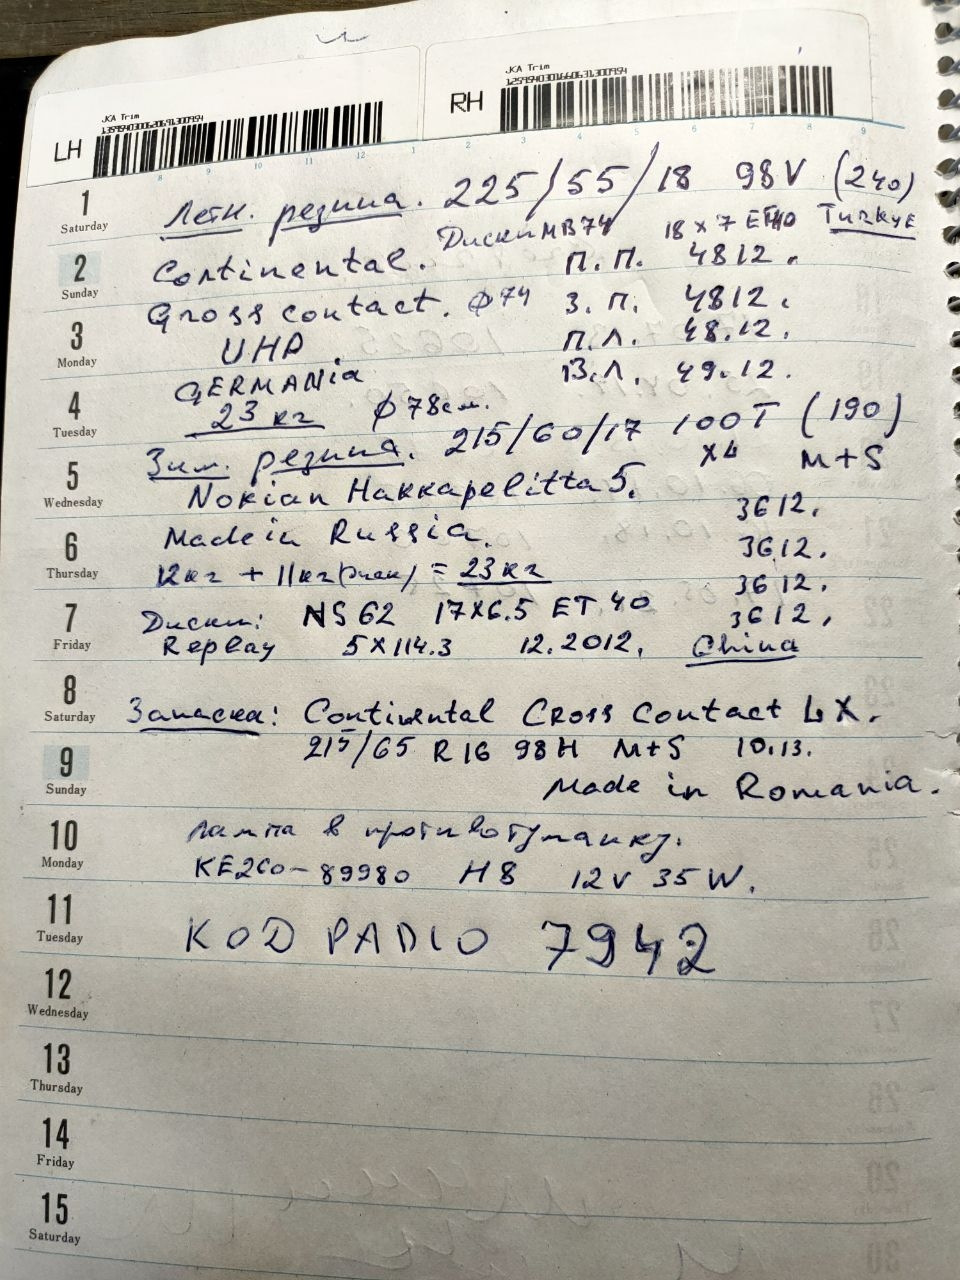 JKA Trim
1359540300620691300954
LH
JKA Trim
1259540301660631300954
RH
1 Saturday
Летн. резина. 225/55/18 98V (240)
Диски MB74 18x7 ET40 Turkye
2 Sunday
Continental. П.П. 4812.
Gross contact. ф74 З.П. 4812.
3 Monday
UHP. П.Л. 48.12.
GERMANIA З.Л. 49.12.
4 Tuesday
23 кг ф78см.
Зим. резина. 215/60/17 100T (190)
5 Wednesday
x4 M+S
Nokian Hakkapelitta 5. 3612.
6 Thursday
Made in Russia. 3612.
12кг + 11кг = 23кг 3612.
7 Friday
Диски: NS62 17x6.5 ET 40 3612.
Replay 5x114.3 12.2012. China
8 Saturday
Запаска: Continental Cross Contact LX.
215/65 R16 98H M+S 10.13.
9 Sunday
Made in Romania.
10 Monday
Лампа в противотуманку.
KE260-89980 H8 12V 35W.
11 Tuesday
KOD РАДIO 7942
12 Wednesday
13 Thursday
14 Friday
15 Saturday